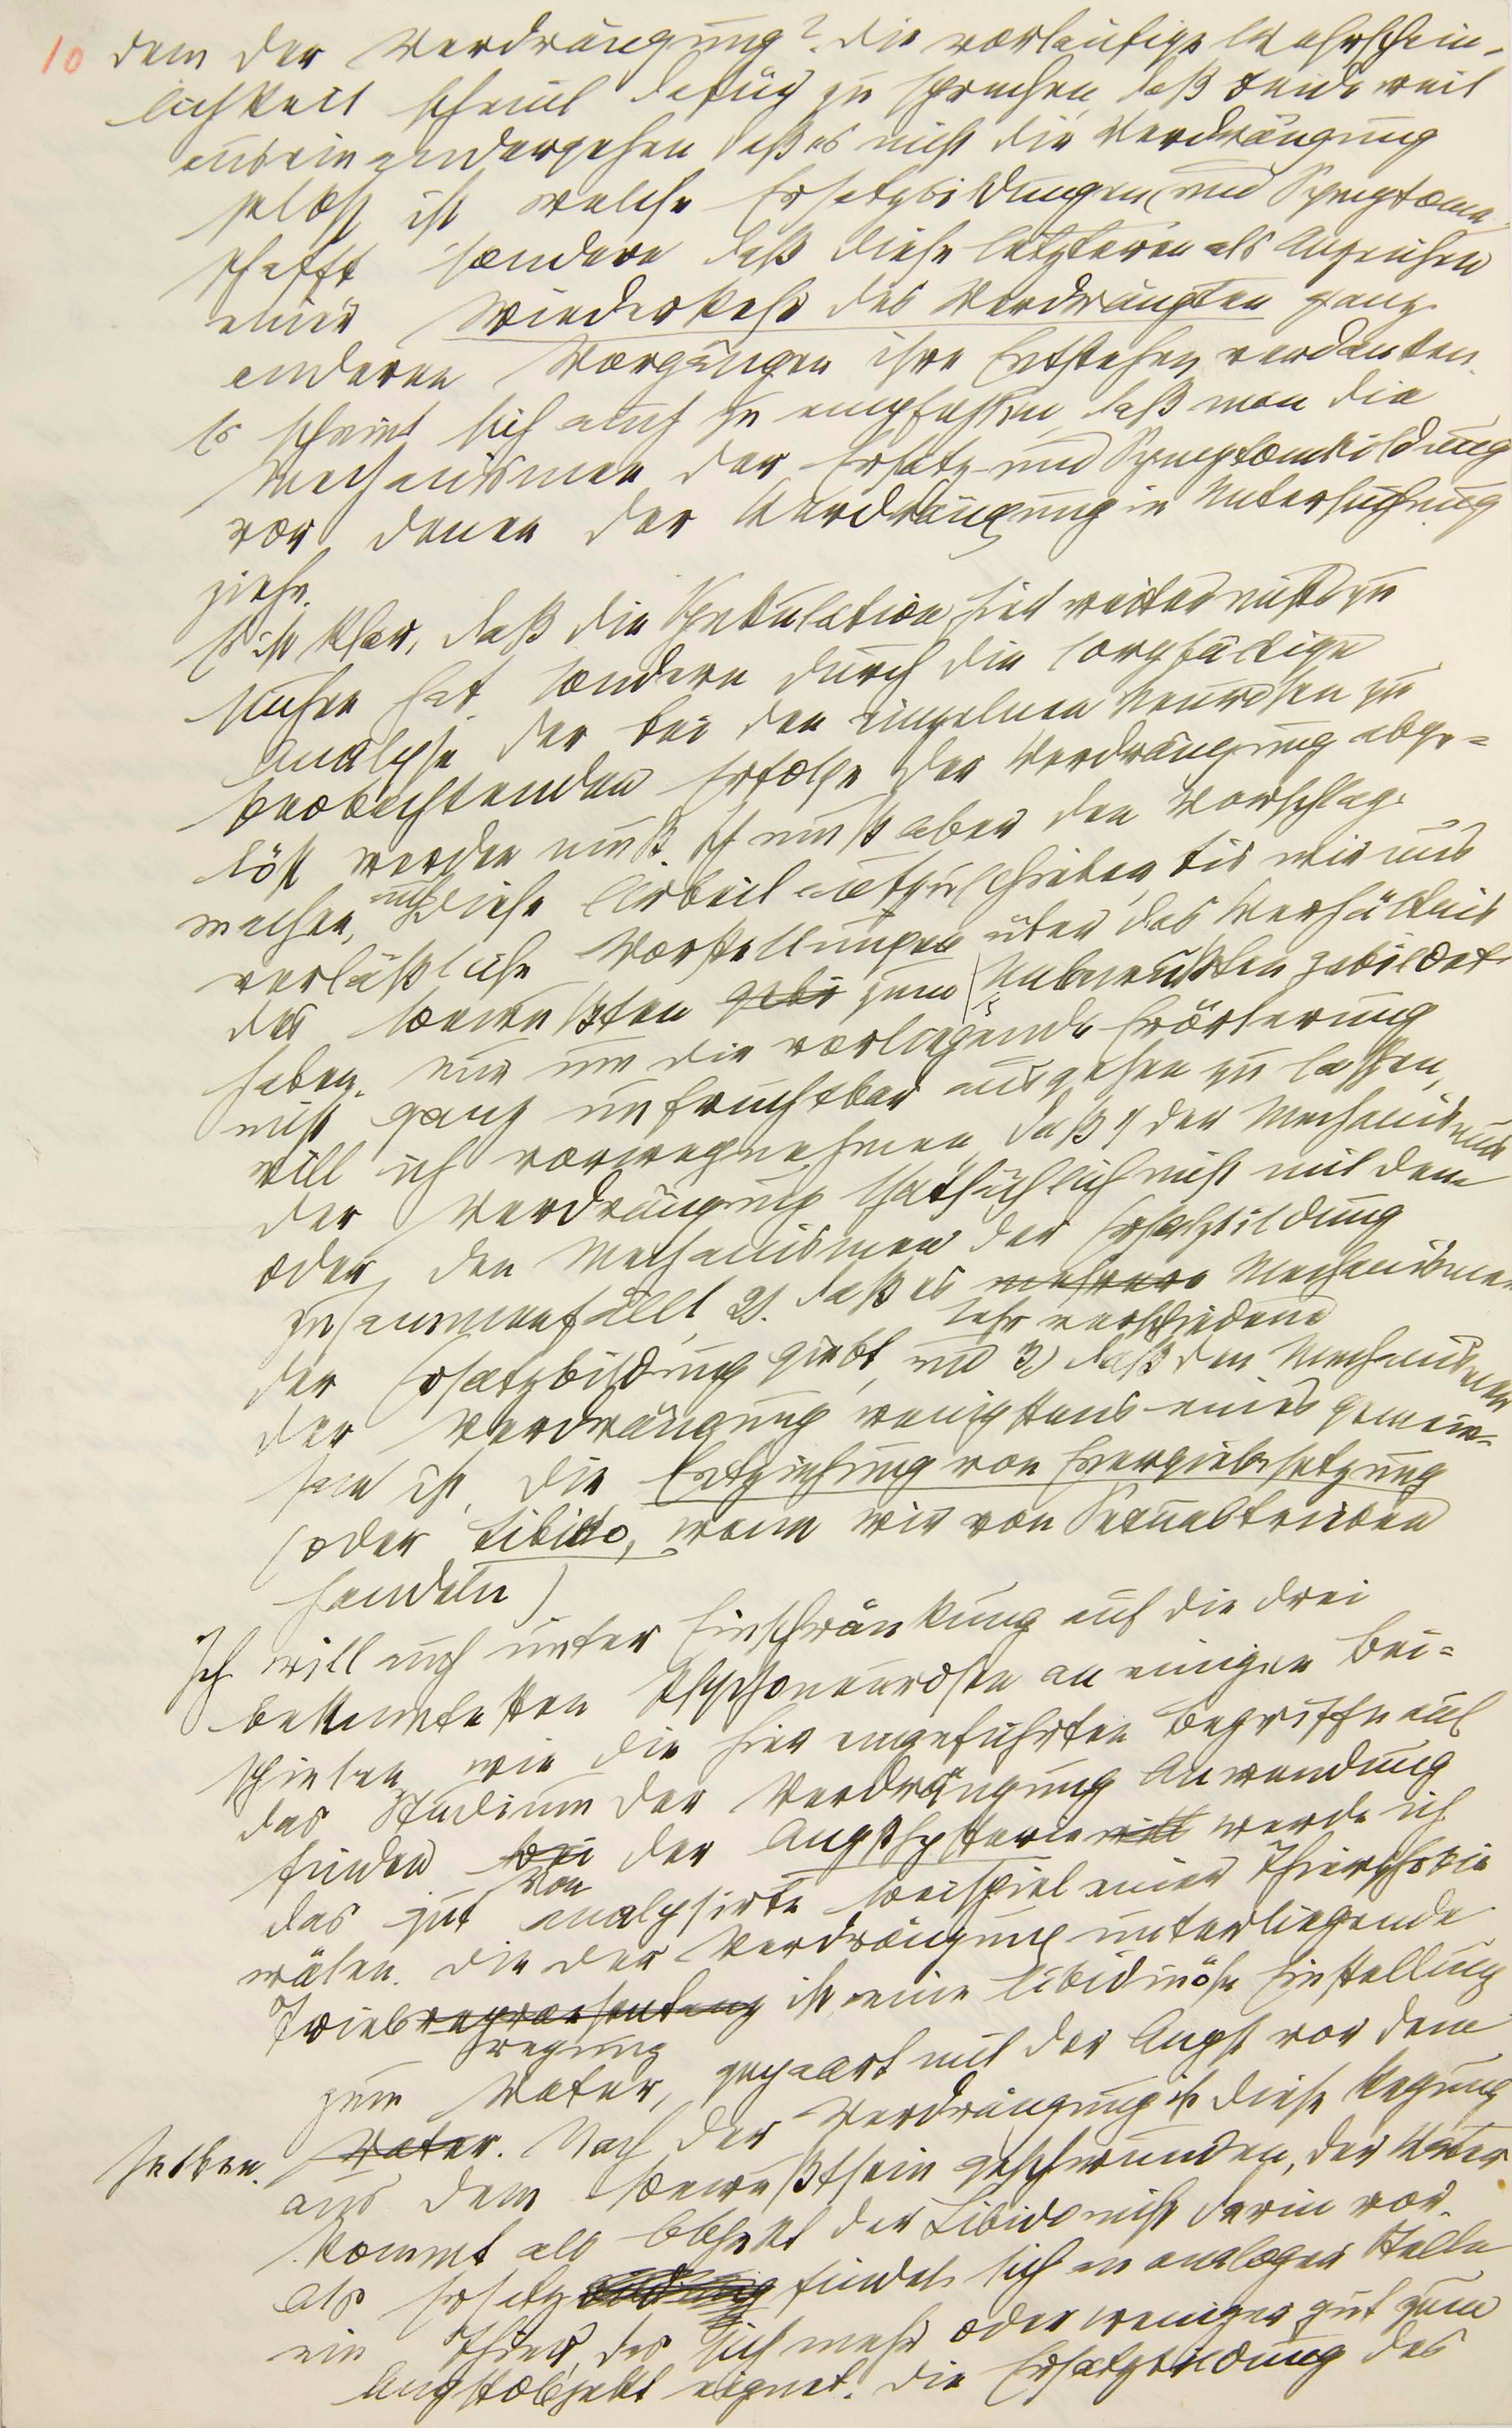 10 dem der Verdrängung? Die vorläufige Wahrschein-
lichkeit scheint dafür zu sprechen, daß beide weit
auseinandergehen, daß es nicht die Verdrängung
selbst ist, welche Ersatzbildungen und Symptome
schafft, sondern daß diese letzteren als Anzeichen
einer Wiederkehr des Verdrängten ganz
anderen Vorgängen ihr Entstehen verdanken.
Es scheint sich auch zu empfehlen, daß man die
Mechanismen der Ersatz- und Symptombildung
vor denen der Verdrängung in Untersuchung
ziehe.
Es ist klar, daß die Spekulation hier weiter nichts zu
suchen hat, sondern durch die sorgfältige
Analyse der bei den einzelnen Neurosen zu
beobachtenden Erfolge der Verdrängung abge=
löst werden muß. Ich muß aber den Vorschlag
machen, auch diese Arbeit aufzuschieben, bis wir uns
verläßliche Vorstellungen über das Verhältnis
des Bewußten zum Unbewußten gebildet
haben. Nur um die vorliegende Erörterung
nicht ganz unfruchtbar ausgehen zu lassen,
will ich vorwegnehmen, daß 1) der Mechanismus
der Verdrängung thatsächlich nicht mit dem
oder den Mechanismen der Ersatzbildung
zusammenfällt, 2). daß es mehrere Mechanismen
sehr verschiedene
der Ersatzbildung giebt, und 3) daß den Mechanismen
der Verdrängung wenigstens eines gemein-
sam ist, die Entziehung von Energiebesetzung
(oder Libido, wenn wir von Sexualtrieben
handeln)
Ich will auch unter Einschränkung auf die drei
bekanntesten Psychoneurosen an einigen Bei=
spielen, wie die hier eingeführten Begriffe auf
das Studium der Verdrängung Anwendung
finden. bei der Angsthysterie will werde ich
Von
das gut analysirte Beispiel einer Thierphobie
wälen. Die der Verdrängung unterliegende
Triebrepraesentanz ist eine libidinöse Einstellung
regung
zum Vater, gepaart mit der Angst vor dem
selben. Vater. Nach der Verdrängung ist diese Regung
aus dem Bewußtsein geschwunden, der Vater
kommt als Objekt der Libido nicht darin vor.
Als Ersatz findet sich an analoger Stelle
ein Thier, das sich mehr oder weniger gut zum
Angstobjekt eignet. Die Ersatzbildung des